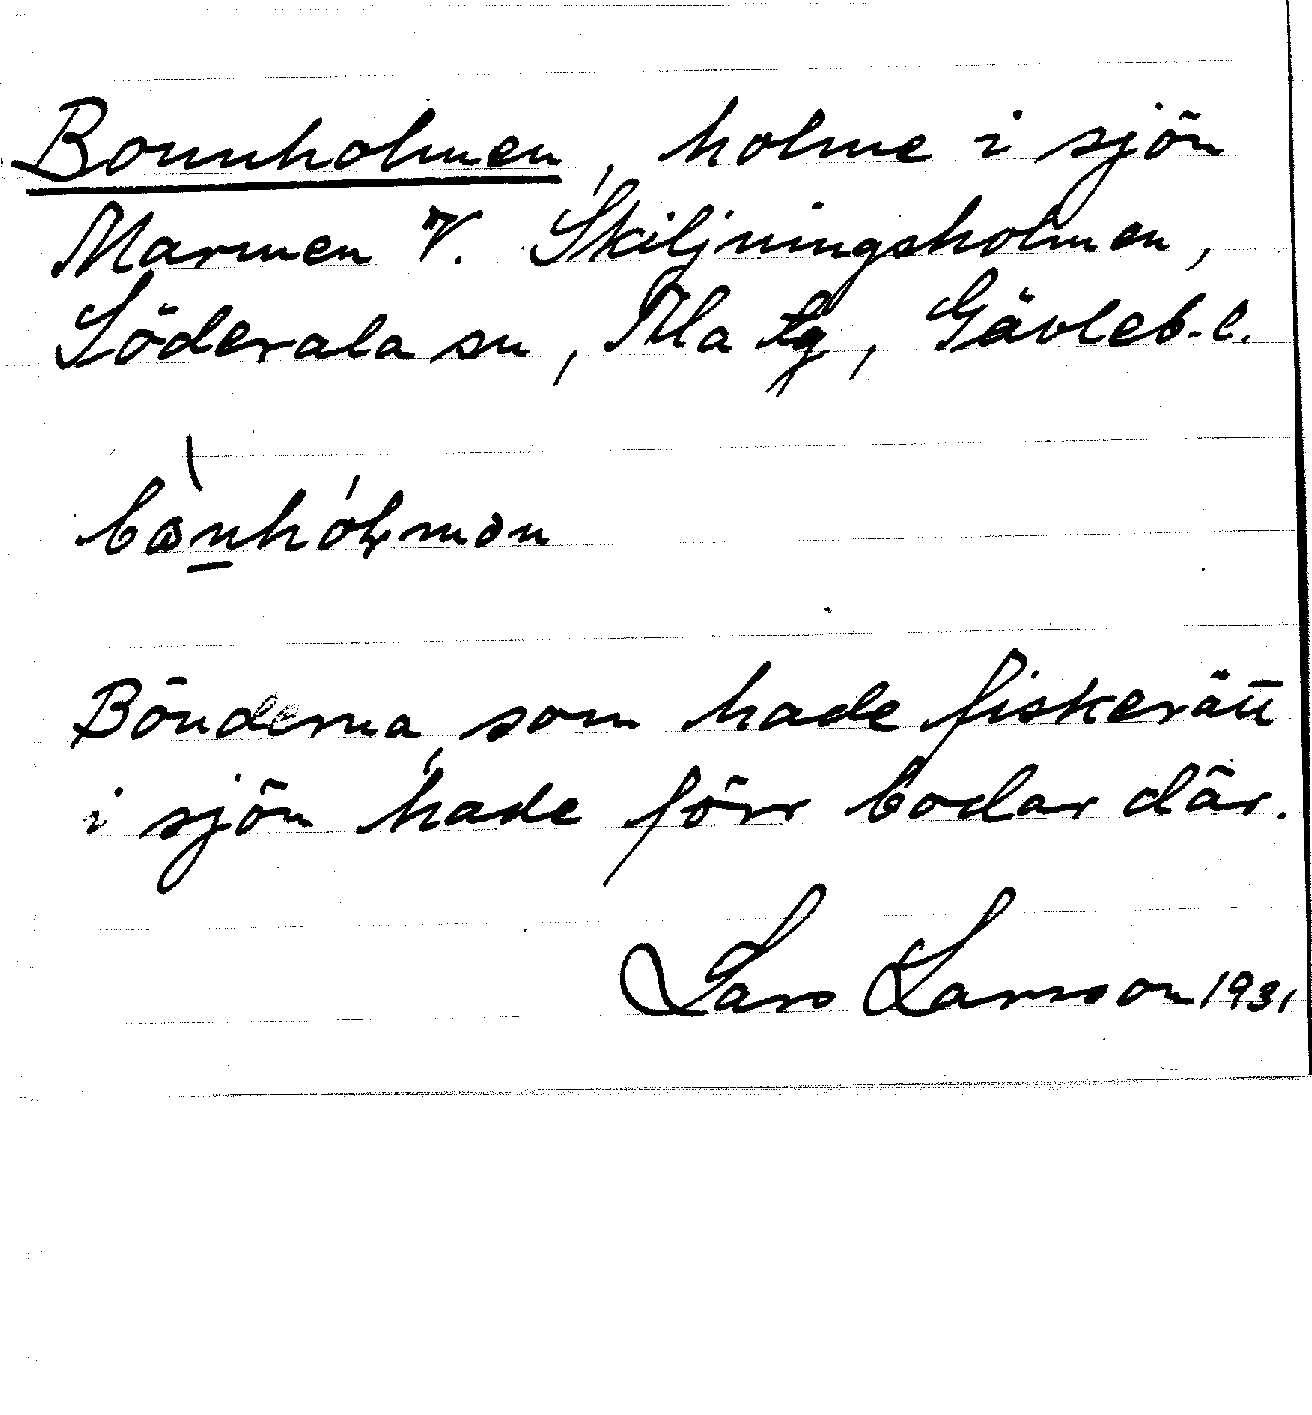 Bonnholmen, holme i sjön
Marmen V. Skiljningsholmen,
Söderala sn, Ala tg, Gävleb. l.
Bönderna, som hade fiskerätt
i sjön hade förr bodar där.
Lars Larsson 1931